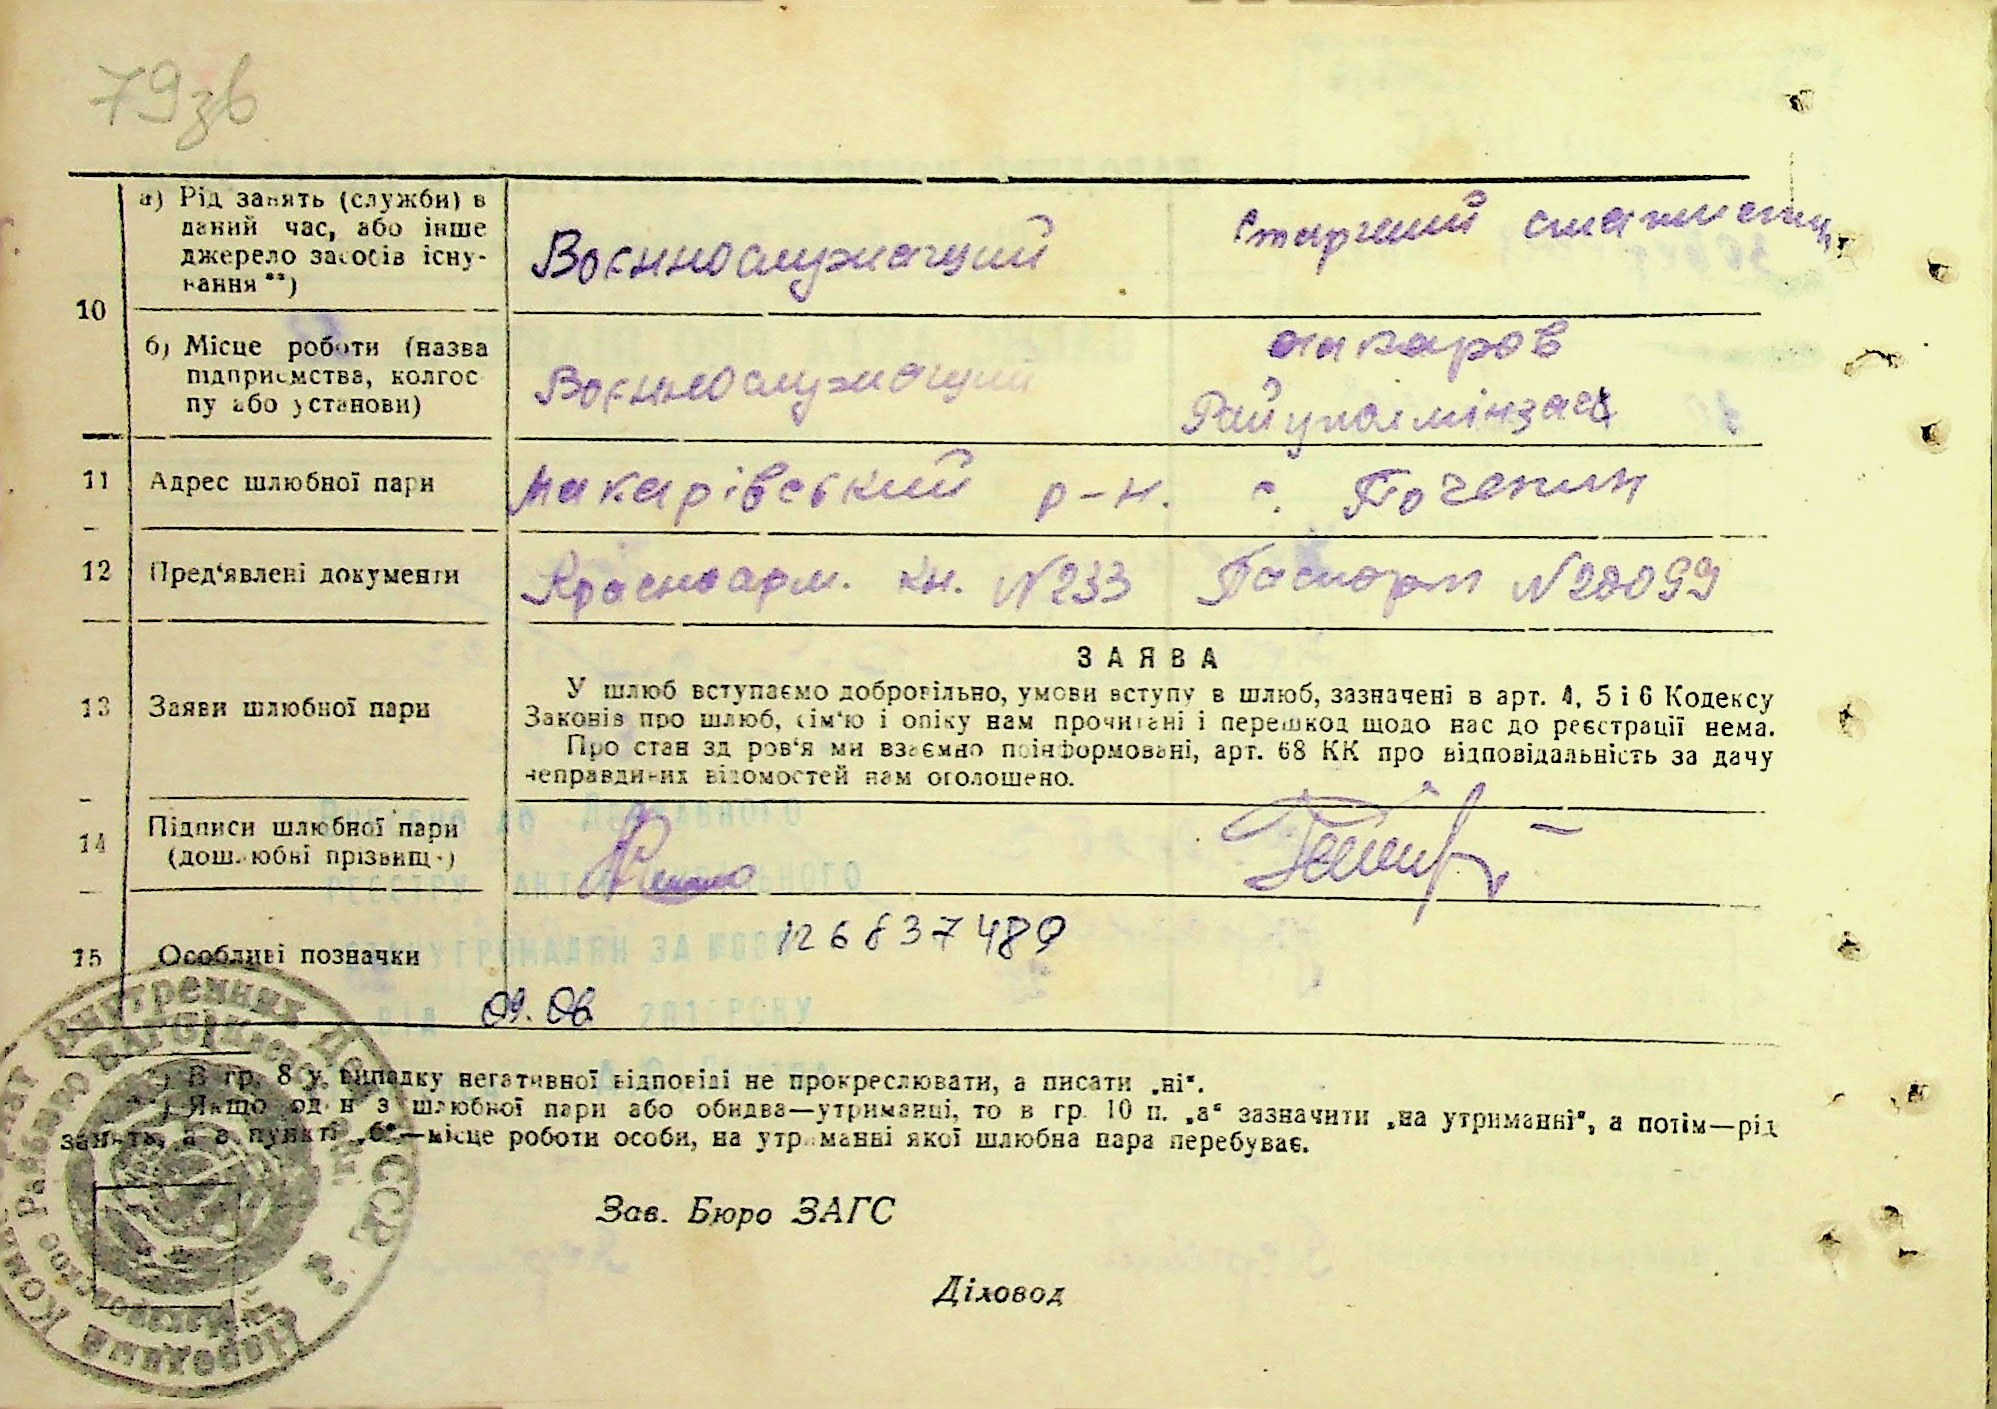 79зв
10
а) Рід занять (служби) в
даний час, або інше
джерело засобів існу-
вання**)
Воєннослужачий
Старший
б) Місце роботи (назва
підприємства, колгос
пу або установи)
Воєннослужачий
макаров
Райуполмінзаг
11 Адрес шлюбної пари
Макарівський р-н. с. Почепин
12 Пред'явлені документи
Красноарм. кн. №233 Паспорт №20099
13 Заяви шлюбної пари
ЗАЯВА
У шлюб вступаємо добровільно, умови вступу в шлюб, зазначені в арт. 4, 5 і 6 Кодексу
Законів про шлюб, сім'ю і опіку нам прочитані і перешкод щодо нас до реєстрації нема.
Про стан здоров'я ми взаємно поінформовані, арт. 68 КК про відповідальність за дачу
неправдивих відомостей нам оголошено.
14 Підписи шлюбної пари
(дошлюбні прізвищ)
15 Особливі позначки
126837489
09.06
*) В гр. 8 у випадку негативної відповіді не прокреслювати, а писати „ні“.
**) Якщо один з шлюбної пари або обидва—утриманці, то в гр. 10 п. „а“ зазначити „на утриманні“, а потім—рід
занять, а в пункті „б“—місце роботи особи, на утриманні якої шлюбна пара перебуває.
Зав. Бюро ЗАГС
Діловод